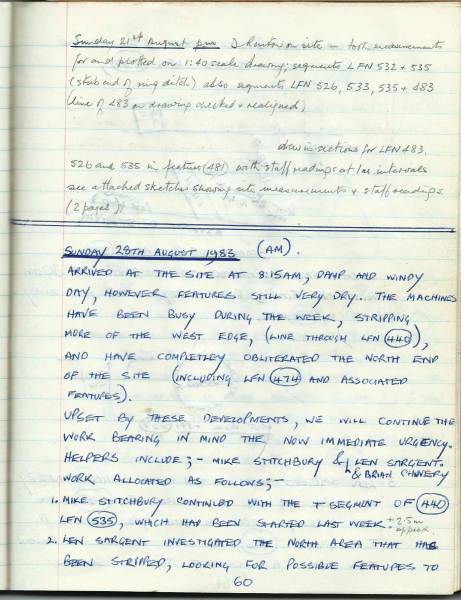 Sunday 21st August pm D Rudon on site in took measurements
for and plotted on 1:40 scale drawing; segments LFN 532 + 535
(stub end of ring ditch) also segments LFN 526, 533, 535 + 483
(line of 483 on drawing checked + realigned)
drew in sections for LFN 483,
526 and 535 in feature (481) with staff readings at 1m intervals
see attached sketches showing site measurements + staff readings
(2 pages)
SUNDAY 28TH AUGUST 1983 (AM).
ARRIVED AT THE SITE AT 8:15AM, DAMP AND WINDY
DAY, HOWEVER FEATURES STILL VERY DRY. THE MACHINES
HAVE BEEN BUSY DURING THE WEEK, STRIPPING
MORE OF THE WEST EDGE, (LINE THROUGH LFN 440),
AND HAVE COMPLETLEY OBLITERATED THE NORTH END
OF THE SITE (INCLUDING LFN 474 AND ASSOCIATED
FEATURES).
UPSET BY THESE DEVELOPMENTS, WE WILL CONTINUE THE
WORK BEARING IN MIND THE NOW IMMEDIATE URGENCY.
HELPERS INCLUDE;- MIKE STITCHBURY & LEN SARGENT.
& BRIAN
WORK ALLOCATED AS FOLLOWS;-
1. MIKE STITCHBURY CONTINUED WITH THE T SEGMENT OF 440
LFN 535, WHICH HAD BEEN STARTED LAST WEEK +2.5m
2. LEN SARGENT INVESTIGATED THE NORTH AREA THAT HAS
BEEN STRIPPED, LOOKING FOR POSSIBLE FEATURES TO
60